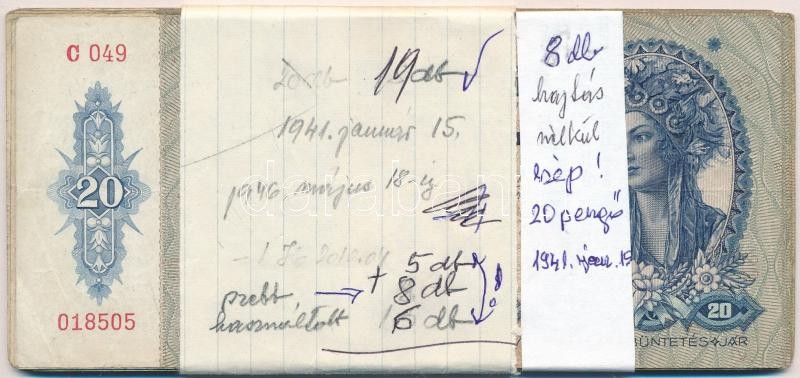 C 049
20
018505
20 db 19 db
1941. január 15.
1946. május 18-ig
5 db
+ 8 db !
szebb
használtabb 6 db
8 db
hajtás
nélkül
szép!
20 pengő
1941. jan. 15
20
BÜNTETÉS JÁR
darabanth